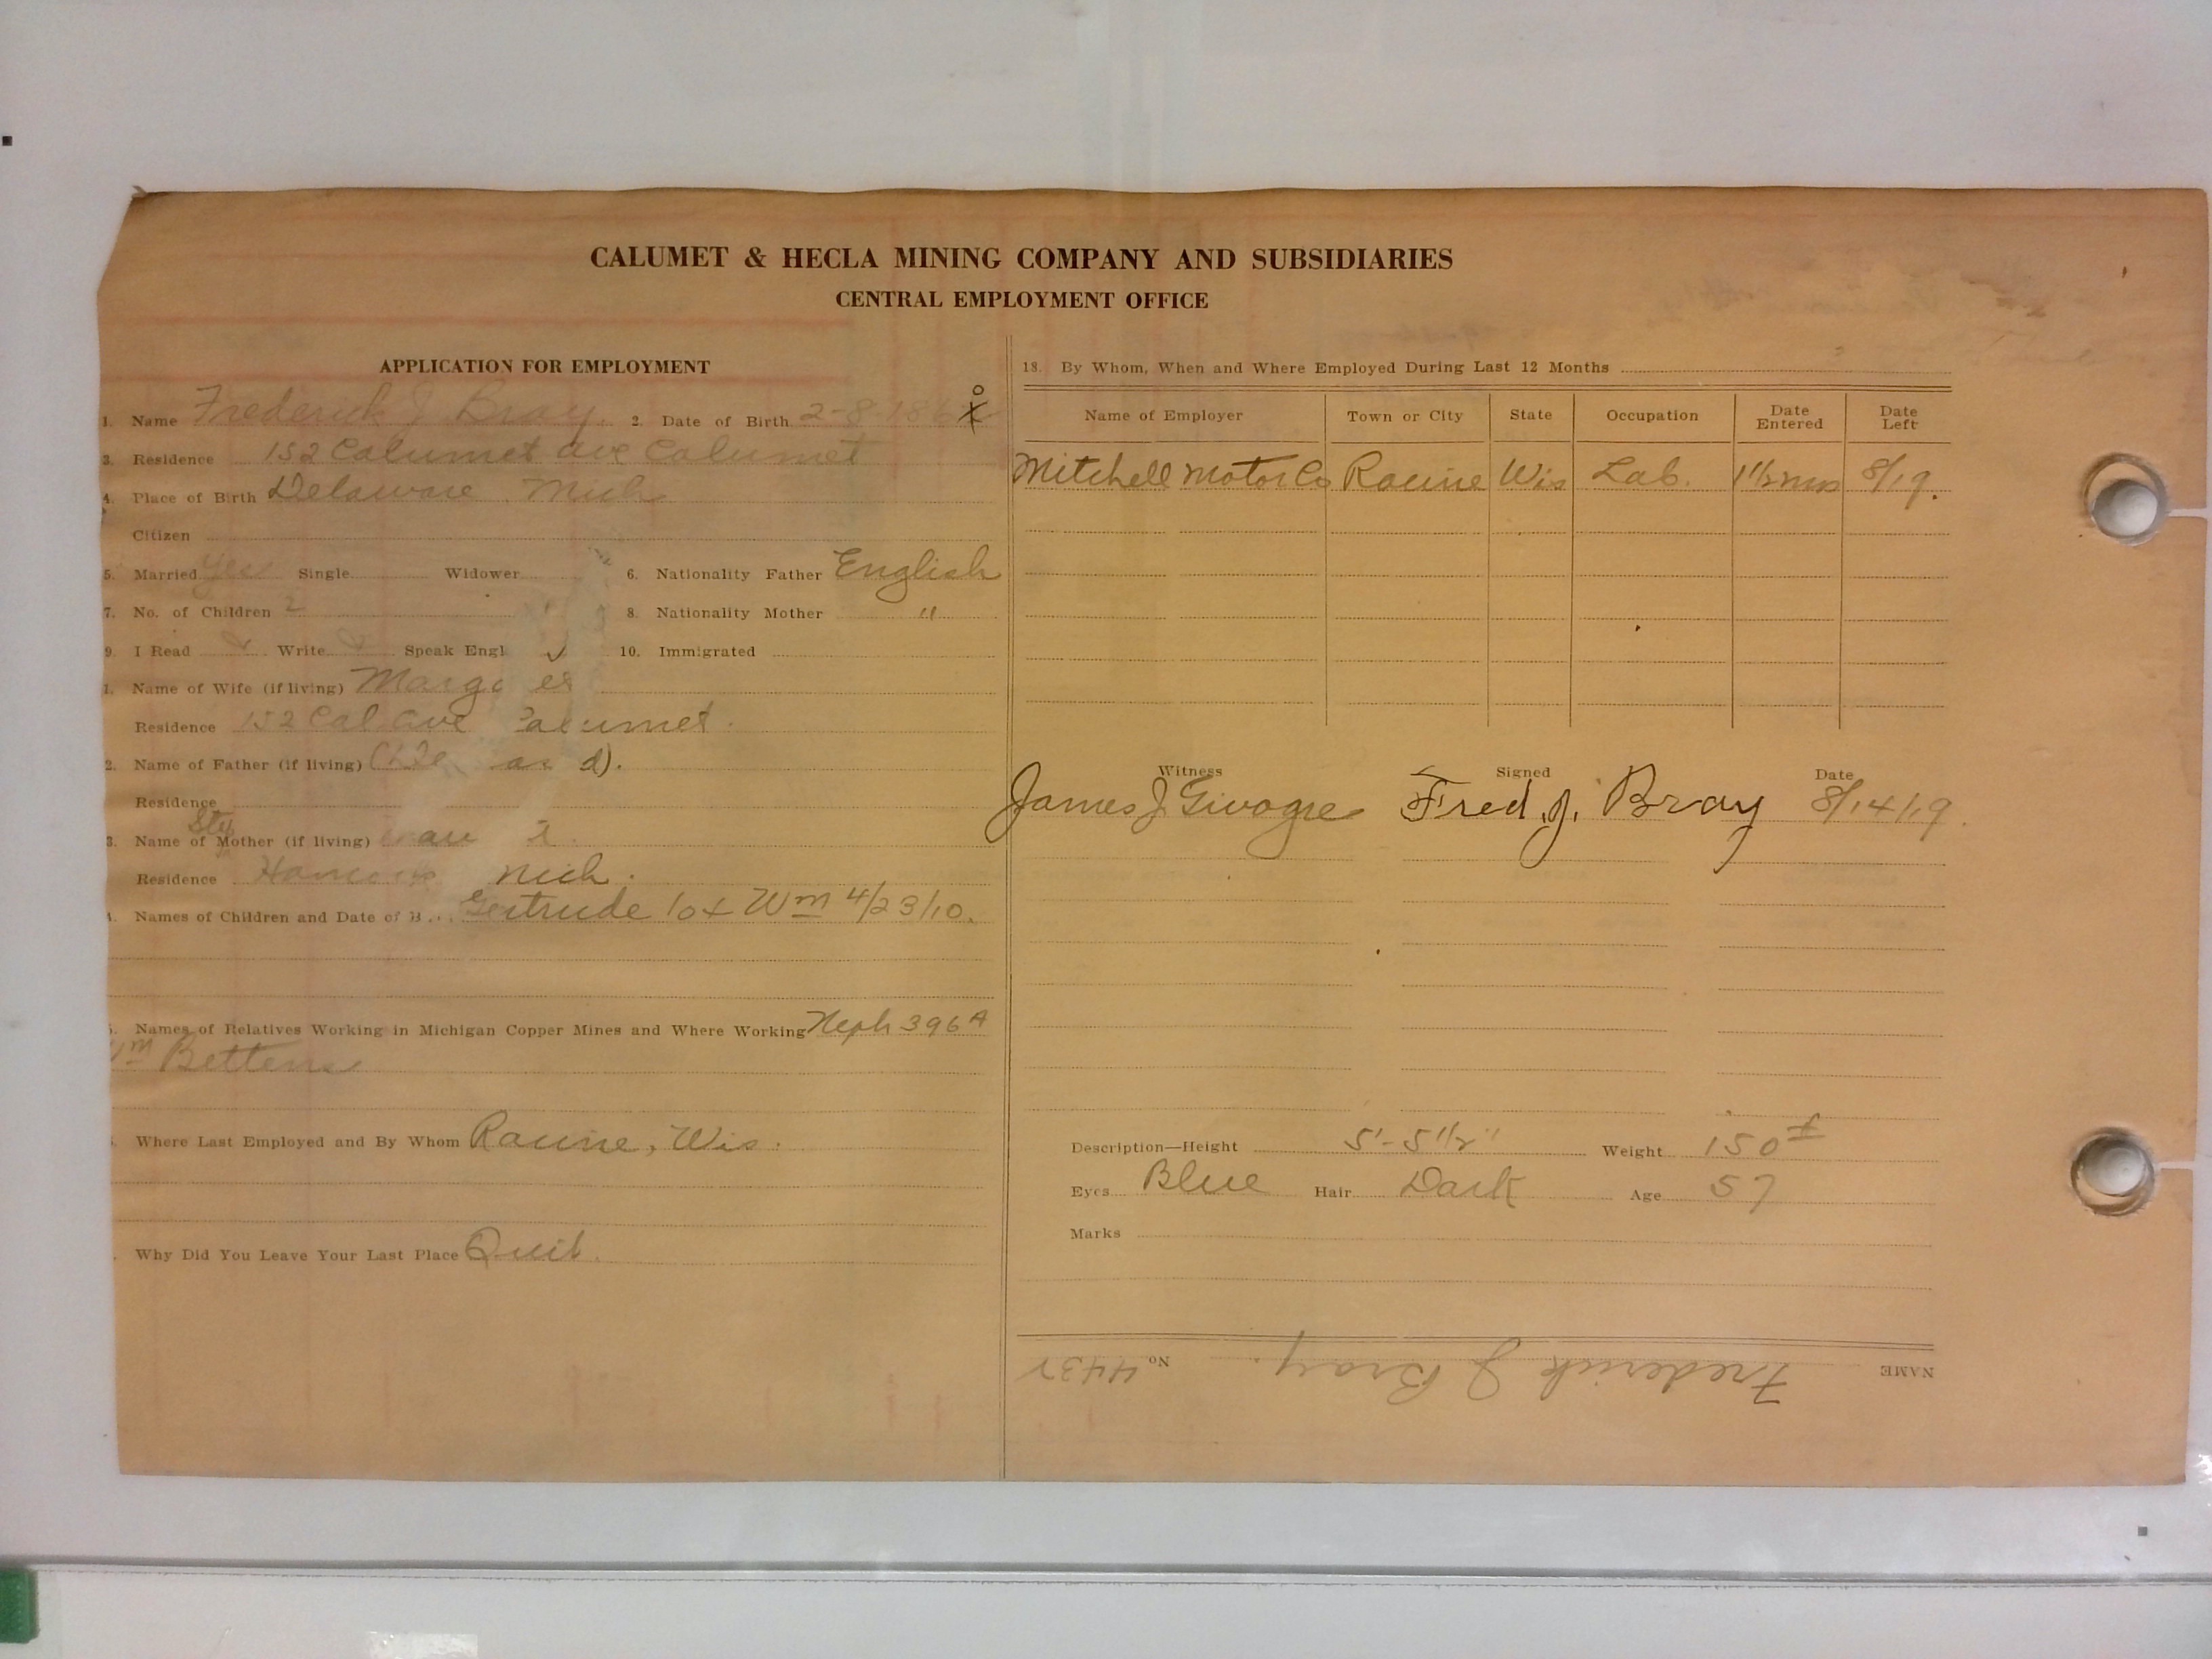 CALUMET & HECLA MINING COMPANY AND SUBSIDIARIES
CENTRAL EMPLOYMENT OFFICE
APPLICATION FOR EMPLOYMENT
1. Name Frederick J Bray. 2. Date of Birth 2-8-186
3. Residence 152 Calumet ave Calumet
4. Place of Birth Delaware Mich
Citizen
5. Married Yes Single Widower 6. Nationality Father English
7. No. of Children 2 8. Nationality Mother "
9. I Read Write Speak Engl 10. Immigrated
1. Name of Wife (if living)
Residence 152 Cal ave
2. Name of Father (if living)
Residence
3. Name of Step Mother (if living)
Residence Mich.
Names of Children and Date of B Gertrude 10 + Wm 4/23/10.
Names of Relatives Working in Michigan Copper Mines and Where Working Neph 396A
Bettens
Where Last Employed and By Whom Racine, Wis.
Why Did You Leave Your Last Place Quit.
18. By Whom, When and Where Employed During Last 12 Months
Name of Employer Town or City State Occupation Date Entered Date Left
Mitchell Motor Co Racine Wis Lab. 1 1/2 mos 8/19.
Witness Signed Date
James J Fred. J. Bray 8/14/19.
Description—Height 5'-5 1/2" Weight 150
Eyes Blue Hair Dark Age 57
Marks
NAME Frederick J Bray. No.